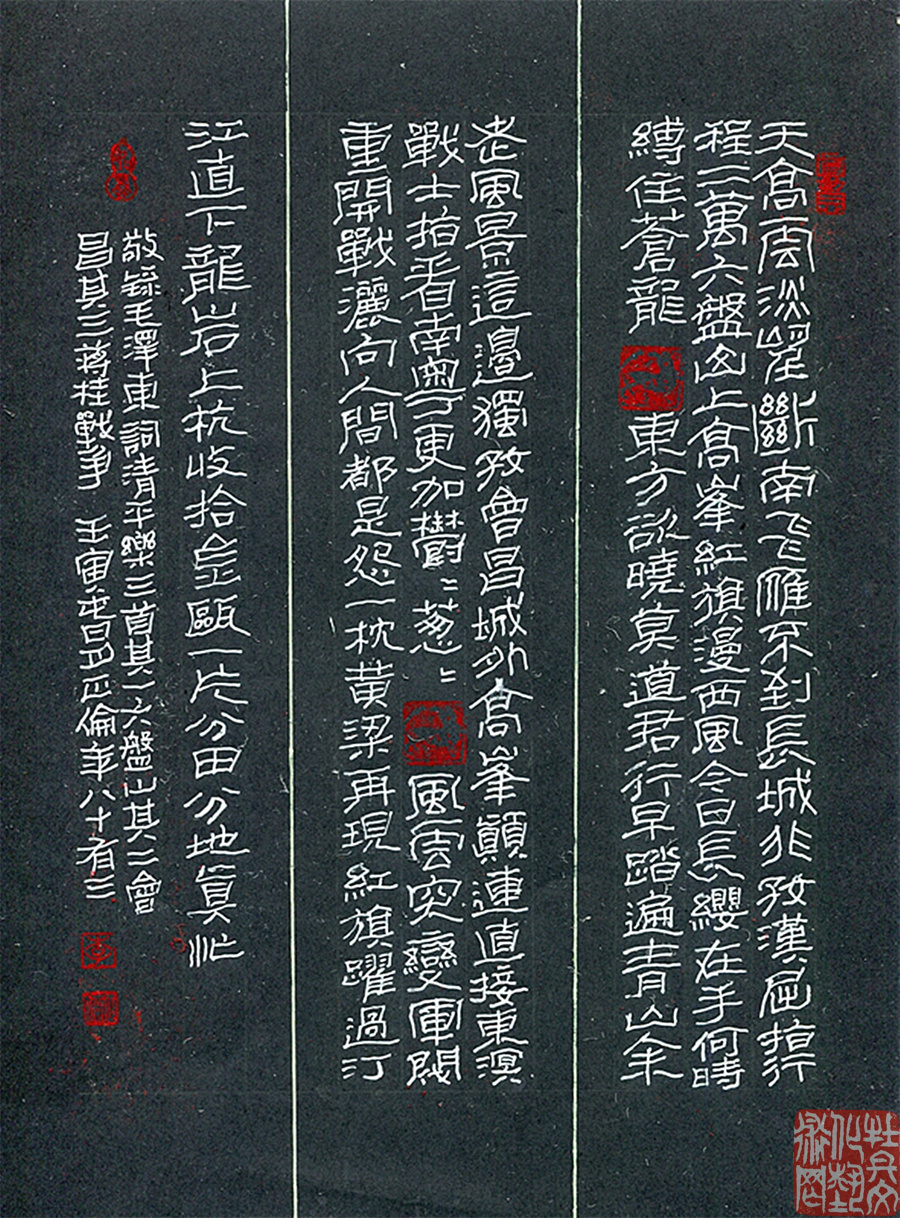 天高雲淡望斷南飞雁不到長城非好漢屈指行
程二萬六盤山上高峯紅旗漫西風今日長纓在手何時
縛住蒼龍 東方欲曉莫道君行早踏遍青山余
老風景這邊獨好會昌城外高峯顛連直接東溟
戰士指看南粵更加鬱〻葱〻 風雲突變軍閥
重開戰灑向人間都是怨一枕黃粱再現紅旗躍過汀
江直下龍岩上杭收拾金甌一片分田分地真忙
敬錄毛澤東詞清平樂三首其一六盤山其二會
昌其三蔣桂戰爭 壬寅 正倫年八十有三